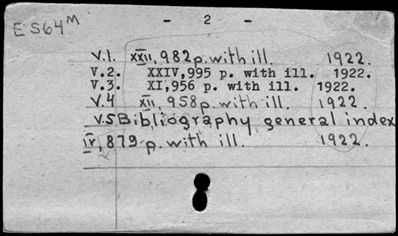 E S64M - 2 -
V.1. XXII, 982 p. with ill. 1922.
V.2. XXIV,995 p. with ill. 1922.
V.3. XI,956 p. with ill. 1922.
V.4 XII, 958 p. with ill. 1922.
V.5 Bibliography general index
IV, 879 p. with ill. 1922.